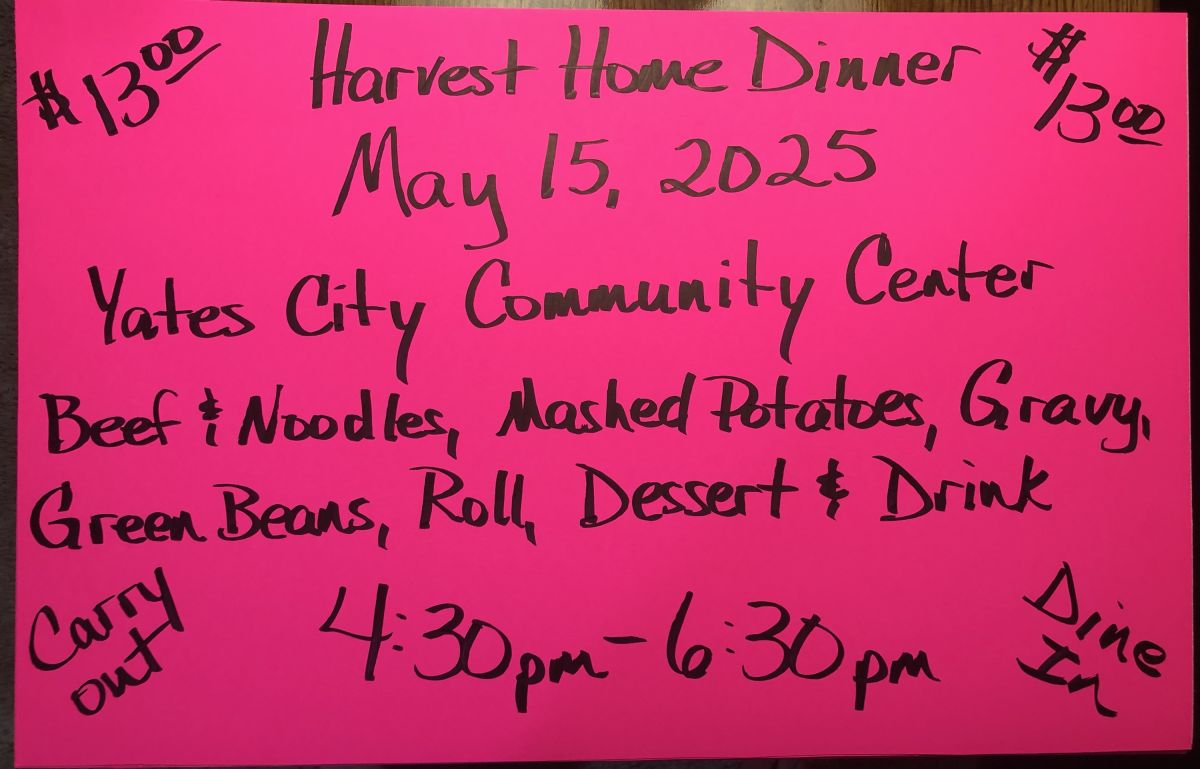 $13.00
Harvest Home Dinner
$13.00
May 15, 2025
Yates City Community Center
Beef & Noodles, Mashed Potatoes, Gravy,
Green Beans, Roll, Dessert & Drink
Carry
out
4:30pm - 6:30pm
Dine
In